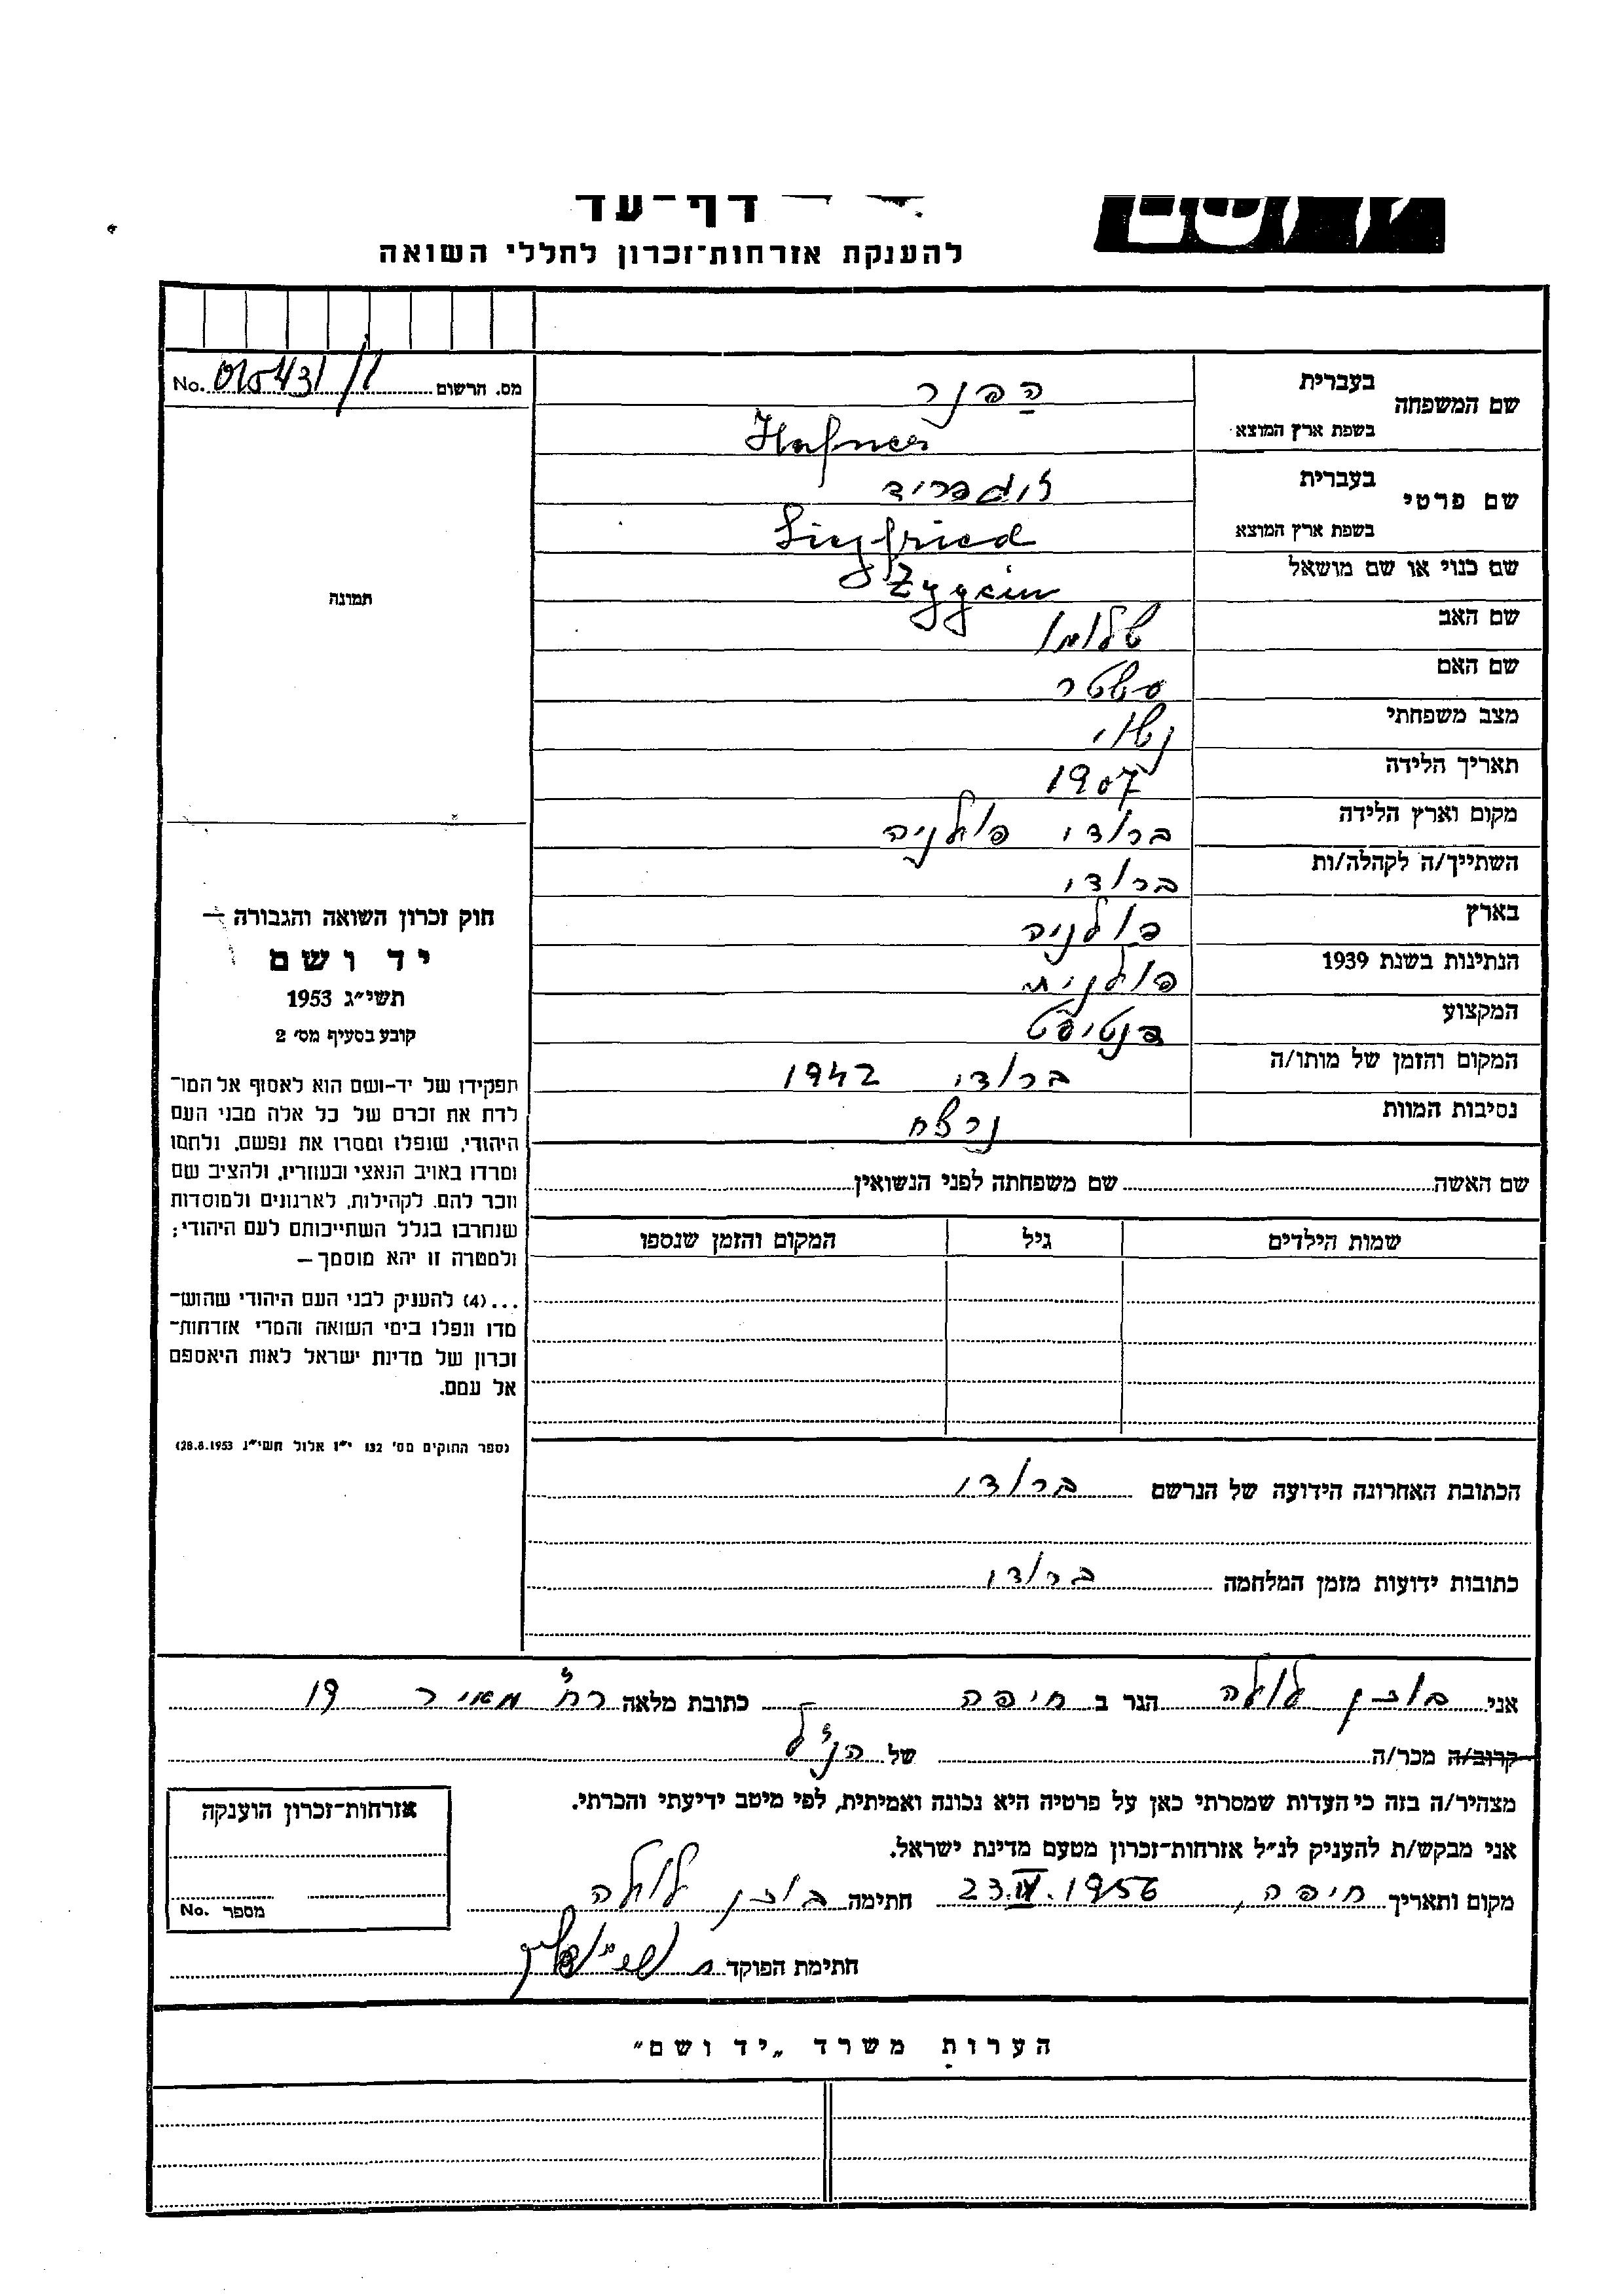 דף-עד
להענקת אזרחות-זכרון לחללי השואה
מס. הרשום No.
שם המשפחה בעברית הפנר
בשפת ארץ המוצא Hafner
שם פרטי בעברית זיגפריד
בשפת ארץ המוצא Siegfried
שם כנוי או שם מושאל
שם האב שלומו
שם האם אסטר
מצב משפחתי נשוי
תאריך הלידה 1907
מקום וארץ הלידה ברודי פולניה
השתייך/ה לקהלה/ות ברודי
בארץ פולניה
הנתינות בשנת 1939 פולנית
המקצוע דנטיסט
המקום והזמן של מותו/ה ברודי 1942
נסיבות המוות נרצח
שם האשה שם משפחתה לפני הנשואין
שמות הילדים גיל המקום והזמן שנספו
הכתובת האחרונה הידועה של הנרשם ברודי
כתובות ידועות מזמן המלחמה ברודי
תמונה
חוק זכרון השואה והגבורה –
יד ושם
תשי״ג 1953
קובע בסעיף מס׳ 2
תפקידו של יד-ושם הוא לאסוף אל המו-
לדת את זכרם של כל אלה מבני העם
היהודי, שנפלו ומסרו את נפשם, נלחמו
ומרדו באויב הנאצי ובעוזריו, ולהציב שם
וזכר להם, לקהילות, לארגונים ולמוסדות
שנחרבו בגלל השתייכותם לעם היהודי;
ולמטרה זו יהא מוסמך –
...(4) להעניק לבני העם היהודי שהוש-
מדו ונפלו בימי השואה והמרי אזרחות-
זכרון של מדינת ישראל לאות היאספם
אל עמם.
(ספר החוקים מס׳ 132 י״ז אלול תשי״ג 28.8.1953)
אני בוזן לולה הגר ב חיפה כתובת מלאה רח׳ מאיר 19
קרוב/ה מכר/ה של הנ״ל
מצהיר/ה בזה כי העדות שמסרתי כאן על פרטיה היא נכונה ואמיתית, לפי מיטב ידיעתי והכרתי.
אני מבקש/ת להעניק לנ״ל אזרחות-זכרון מטעם מדינת ישראל.
מקום ותאריך חיפה, 23.IV.1956 חתימה בוזן לולה
חתימת הפוקד
אזרחות-זכרון הוענקה
מספר No.
הערות משרד „יד ושם״